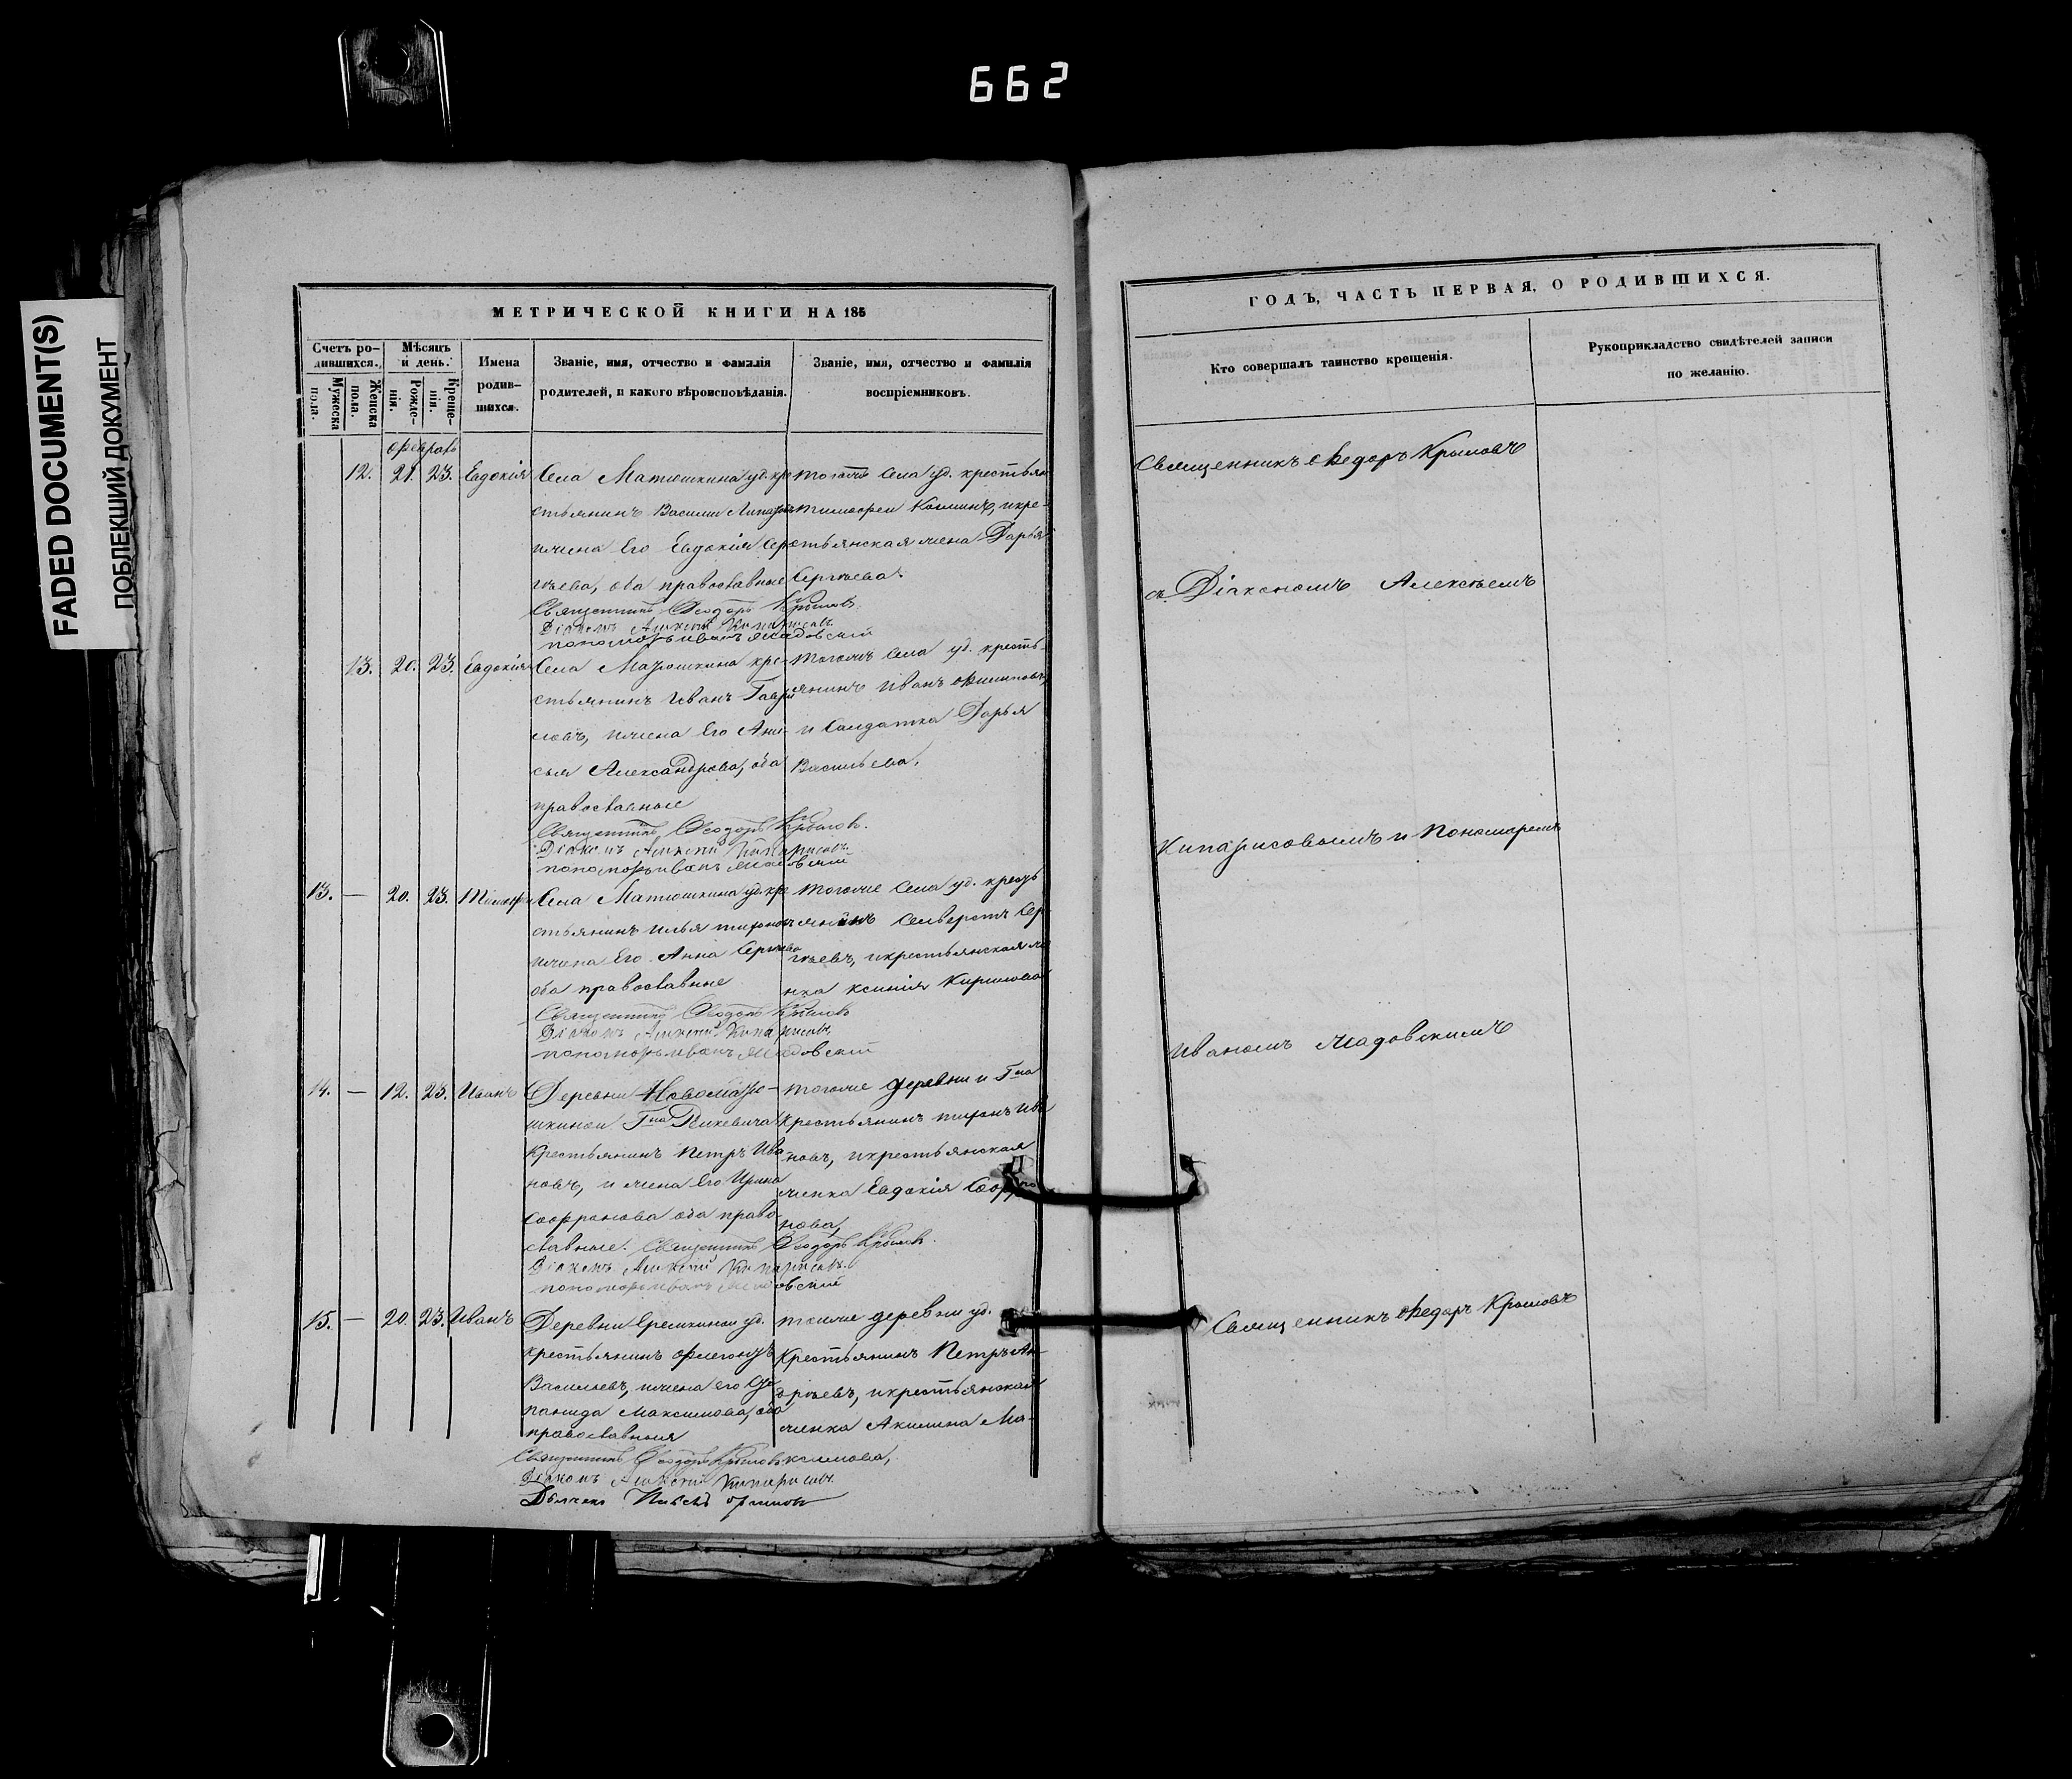 662
FADED DOCUMENT(S)
ПОБЛЕКШИЙ ДОКУМЕНТ
МЕТРИЧЕСКОЙ КНИГИ НА 185
Счетъ ро-
дившихся.
Мужеска
пола.
Женска
пола.
Мѣсяцъ
и день.
Рожде-
нія.
Креще-
нія.
Имена
родив-
шихся.
Званіе, имя, отчество и фамилія
родителей, и какого вѣроисповѣданія.
Званіе, имя, отчество и фамилія
воспріемниковъ.
12. 21. 23. Евдокія
Села Матюшкина уд. кре
стьянинъ Василий
и жена Его Евдокія Сер
гѣева, оба православные
Священникъ Ѳеодоръ Крыловъ.
Діаконъ Алексій Кипарисовъ.
пономарь Иванъ
Тогоже Села уд. крестьян
Тимофей и кре-
стьянская жена Дарья
Сергѣева.
13. 20. 23. Евдокія
Села Матюшкина кре-
стьянинъ Иванъ Гаври
ловъ, и жена Его Ани-
сья Александрова, оба
православные
Священникъ Ѳеодоръ Крыловъ.
Діаконъ Алексій Кипарисовъ.
пономарь Иванъ
Тогожъ Села уд. кресть-
янинъ Иванъ Филиповъ,
и Салдатка Дарья
Васильева.
13. — 20. 23.
Села Матюшкина уд. кре
стьянинъ Илья
и жена Его Анна Сергѣева
оба православные
Священникъ Ѳеодоръ Крыловъ
Діаконъ Алексій Кипарисовъ.
пономарь Иванъ
Тогоже Села уд. кресть
янинъ Селверстъ Сер-
гѣевъ, и крестьянская же
нка Ксинія Кирилова
14. — 12. 23. Иванъ
Деревни Новоматю-
шкиной Гна
Крестьянинъ Петръ Ива
новъ, и жена Его Ирина
Софронова оба право-
славные. Священникъ Ѳеодоръ Крыловъ.
Діаконъ Алексій Кипарисовъ.
пономарь Иванъ
Тогоже деревни и Гна
Крестьянинъ Ива
новъ, и крестьянская
женка Евдокія Софро
нова,
15. — 20. 23. Иванъ
Деревни Еремкиной уд.
крестьянинъ
Васильевъ, и жена его Сте
панида Максимова, оба
православныя
Священникъ Ѳеодоръ Крыловъ
Діаконъ Алексій Кипарисовъ.
Тоиже деревни уд.
Крестьянинъ Петръ Ан-
дрѣевъ, и крестьянская
женка Акилина Ма-
ксимова,
ГОДЪ, ЧАСТЬ ПЕРВАЯ, О РОДИВШИХСЯ.
Кто совершалъ таинство крещенія.
Рукоприкладство свидѣтелей записи
по желанію.
Священникъ Ѳедоръ Крыловъ
съ Діакономъ Алексѣемъ
Кипарисовымъ и Пономаремъ
Иваномъ
Священникъ Ѳедоръ Крыловъ